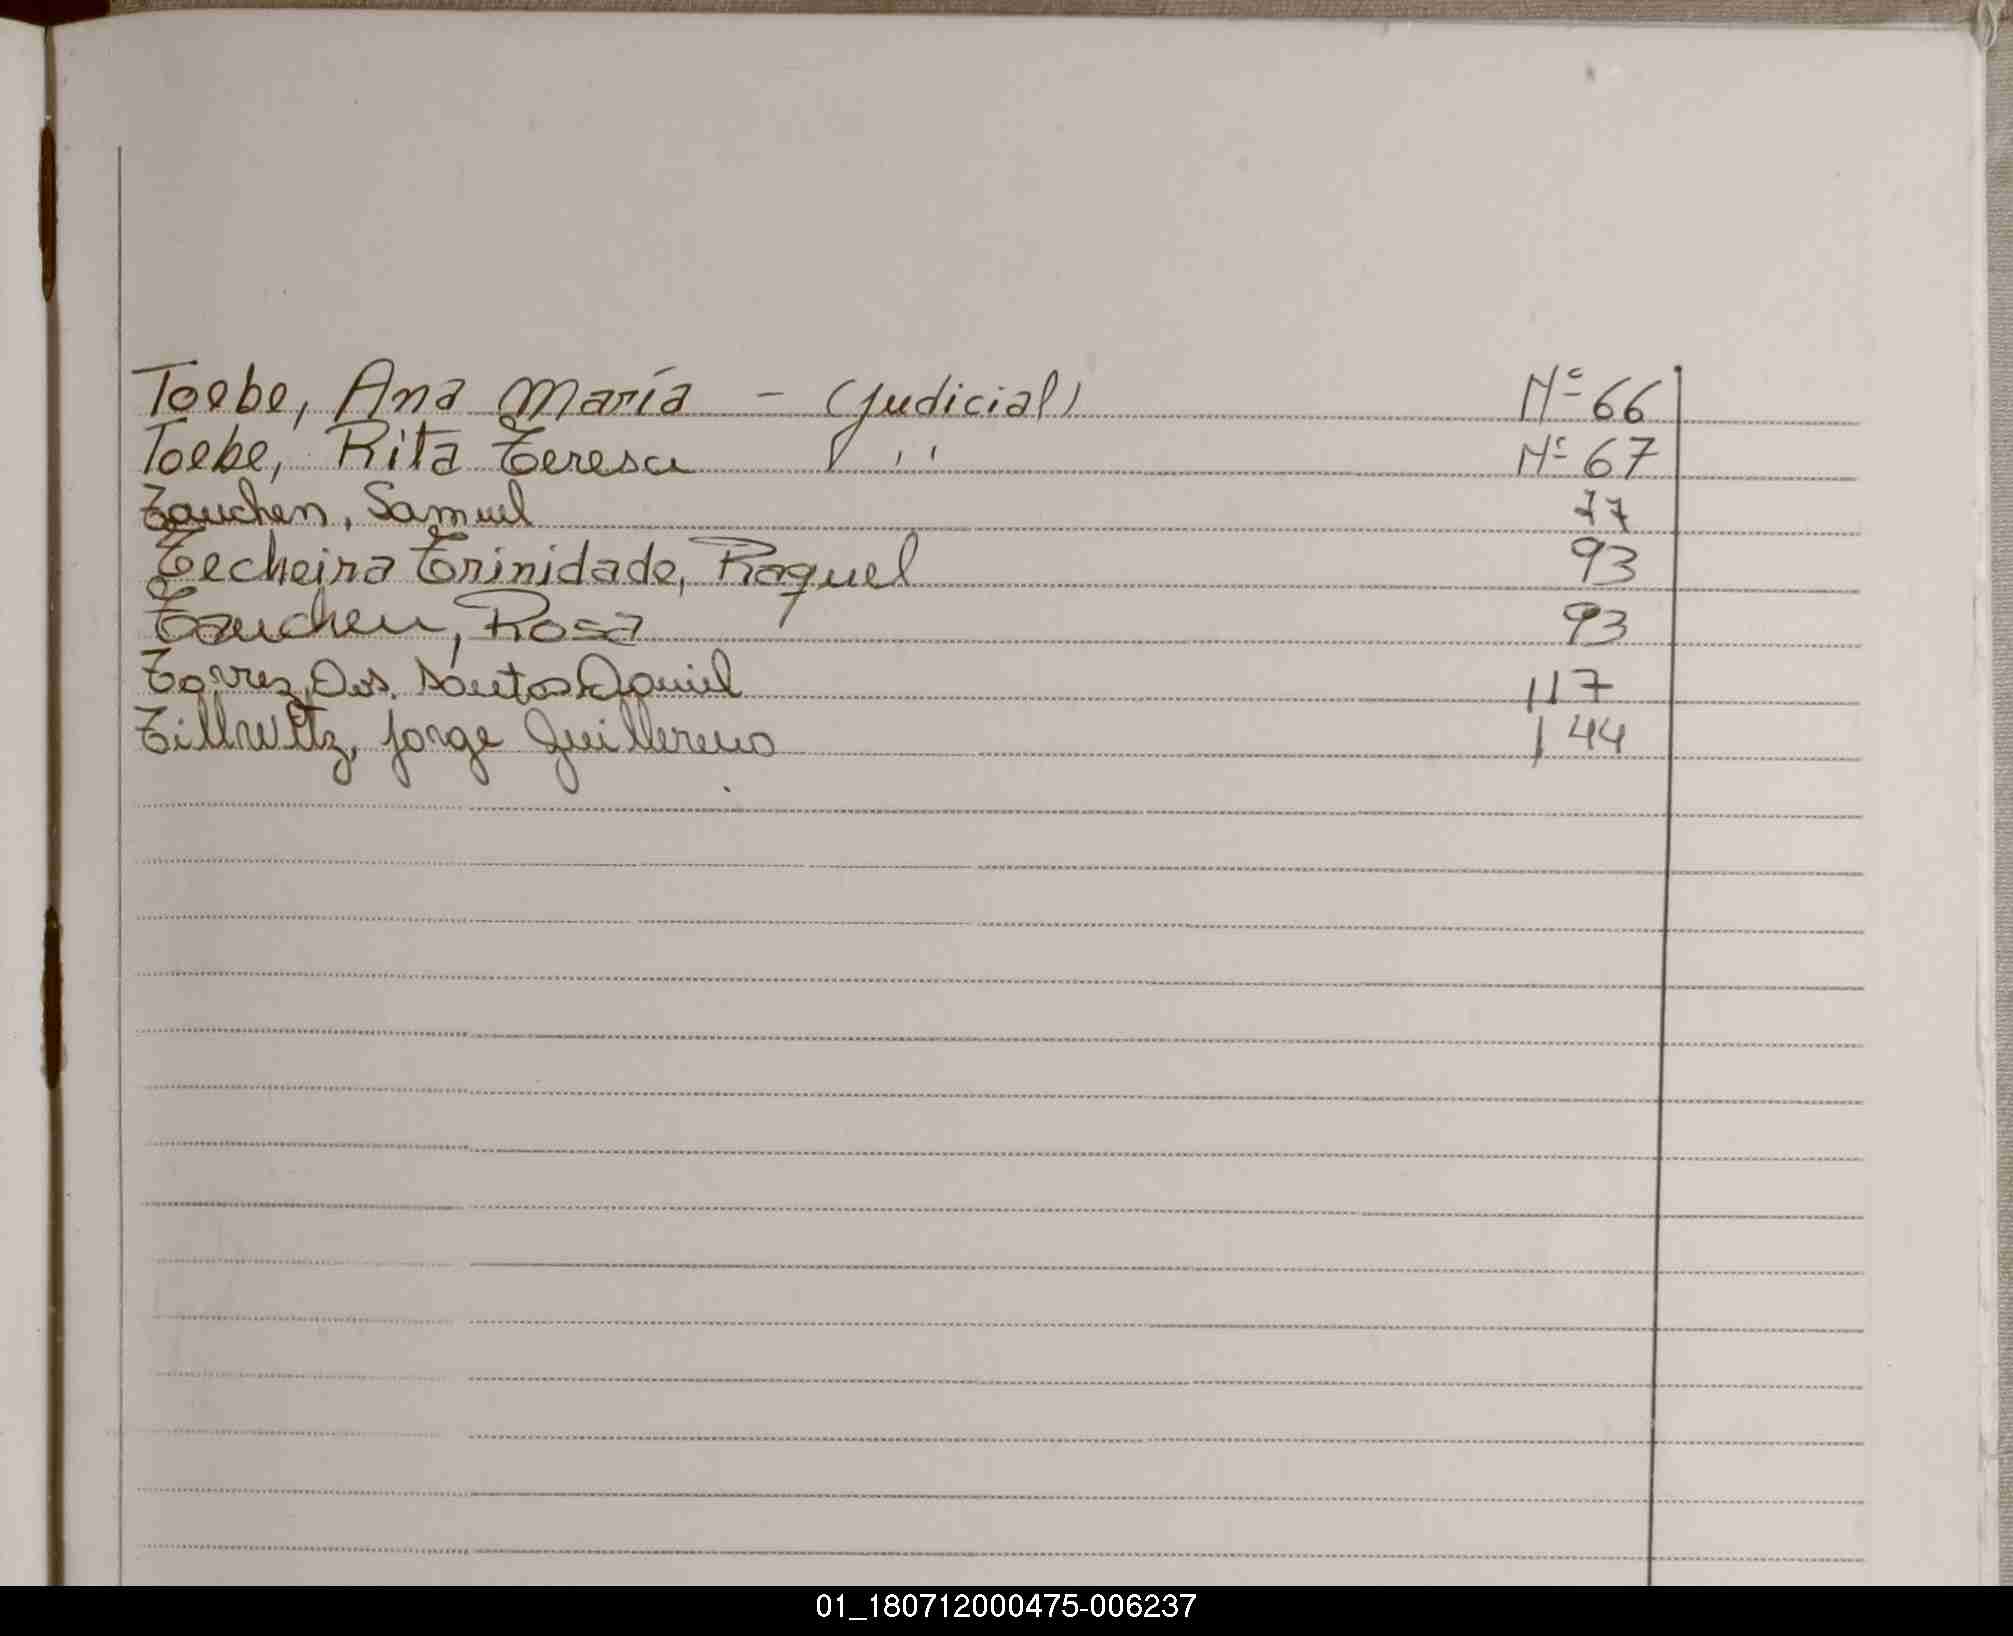 Toebe, Ana María - (Judicial) Nº 66
Toebe, Rita Teresa " Nº 67
Tauchen, Samuel 77
Techeira Trinidade, Raquel 93
Tauchen, Rosa 93
Torrez, Dos Santos Daniel 117
Tillwitz, Jorge Guillermo 144
01_180712000475-006237